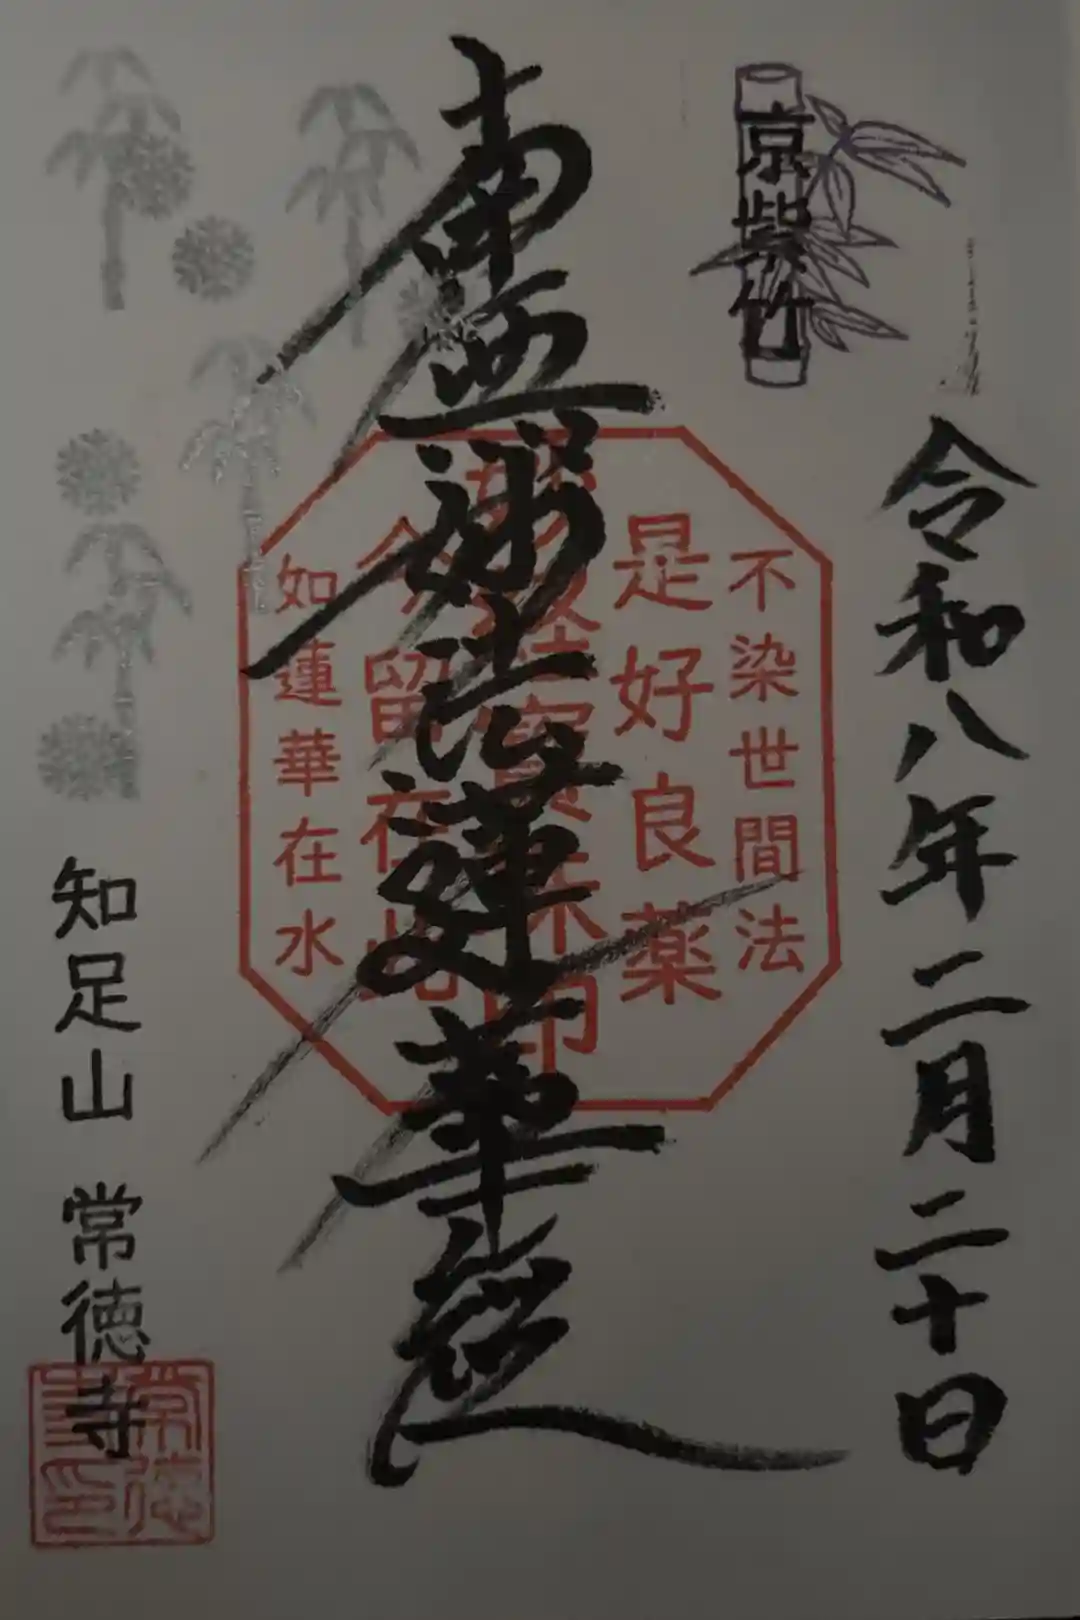 京紫竹
令和八年二月二十日
不染世間法
是好良薬
南無妙法蓮華経
今留在此
如蓮華在水
知足山 常徳寺
常徳
寺印